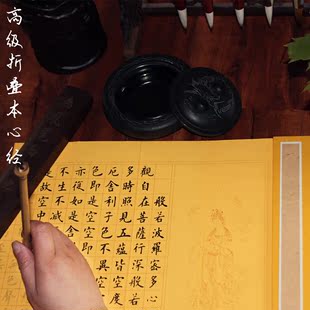 高级折叠本心经
般若波羅蜜多心
觀自在菩薩行深般若
多時照見五蘊皆空度
厄舍利子色不異空
色即是空空即是
亦復如是舍
不生不滅
故空中